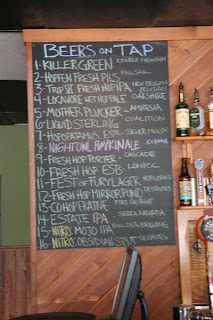 BEERS ON TAP
1- KILLER GREEN DOUBLE MOUNTAIN
2- HOPFEN FRESH PILS FULL SAIL
3- TRIP VI FRESH HOP IPA NEW BELGIAN
4- LOCAVORE WET HOP ALE OAKSHIRE
5- MOTHER PLUCKER - AMNESIA
6- LIQUID STERLING - COALITION
7- HOPOPATAMUS ESB - SILVER MOON
8- NIGHT OWL PUMPKIN ALE ELYSIAN
9- FRESH HOP PORTER - CASCADE
10- FRESH HOP ESB - LOMPOC
11- FEST OF FURY LAGER HOPWORKS
12- FRESH HOP MIRROR POND DESCHUTES
13- COHOPERATIVE FORT GEORGE
14- ESTATE IPA - SIERRA NEVADA
15- NITRO: MOJO IPA BOULDER BREWING
16- NITRO: OBSIDIAN STOUT DESCHUTES